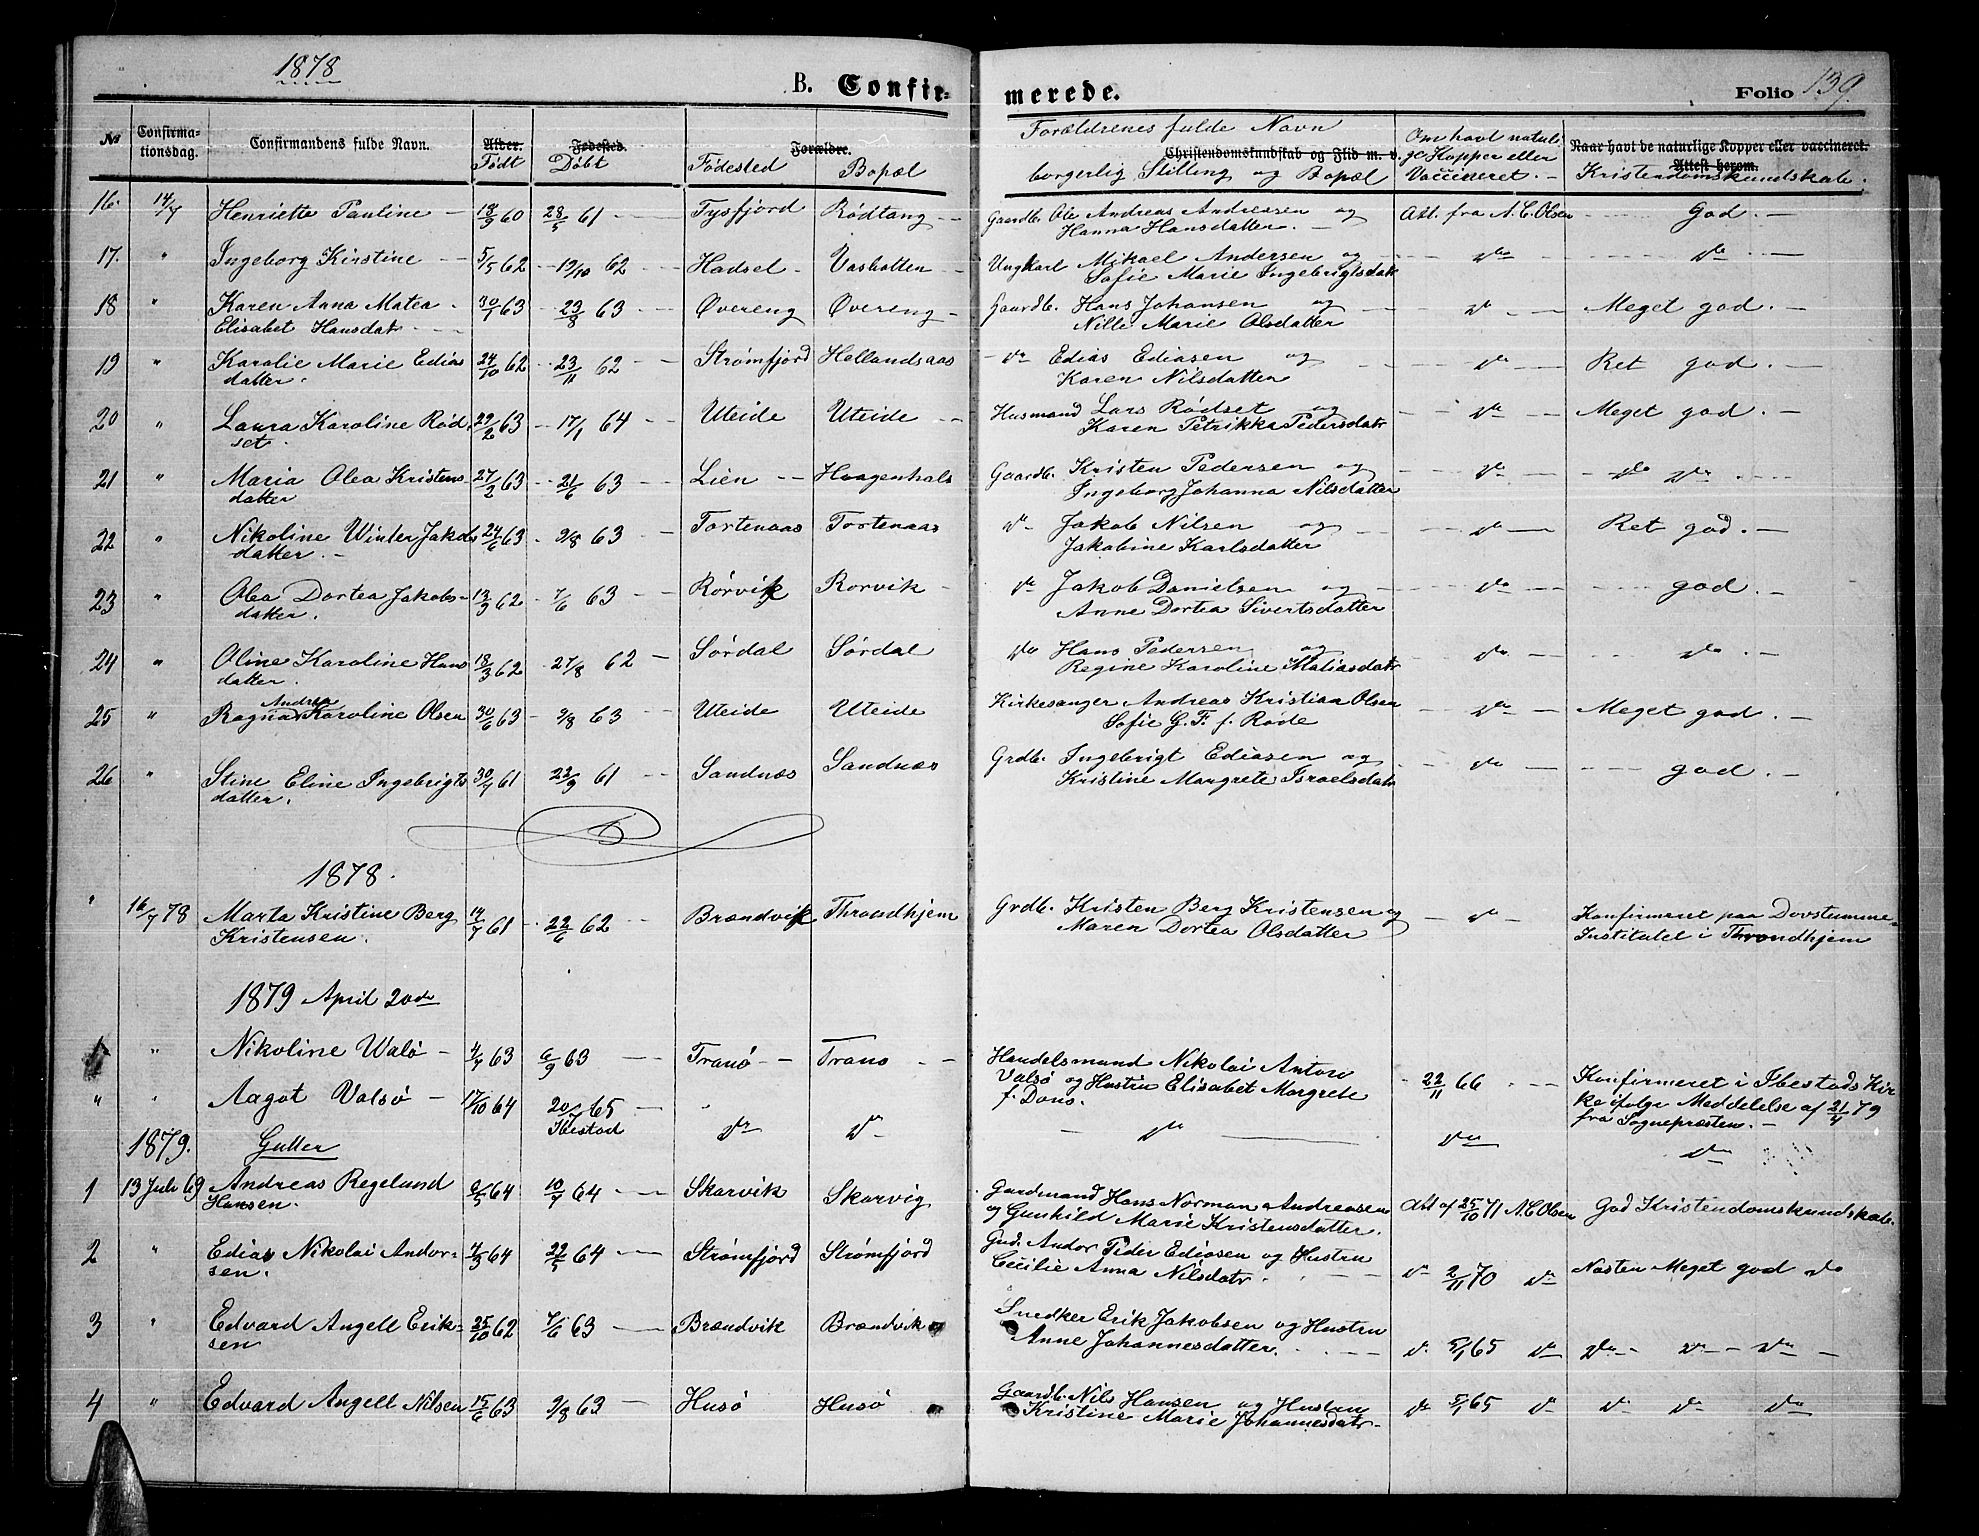 1878
B. Confir=
merede.
Folio 139.
№
Confirma-
tionsdag.
Confirmandens fulde Navn.
Alder.
Født
Fødested.
Døbt
Forældre.
Fødested
Bopæl
Forældrenes fulde Navn
Christendomskundskab og Flid m. v.
borgerlig Stilling og Bopæl
Om havt naturli
ge Kopper eller
Vaccineret. -
Naar havt de naturlige Kopper eller vaccineret.
Attest herom.
Kristendomskundskab.
16. 14/7 Henriette Pauline - 18/9 60 28/5 61 - Tysfjord Rødtang - Gaardb. Ole Andreas Andreasen og Att. fra A. C. Olsen God. -
Hanna Hansdatter. -
17. " Ingeborg Kirstine - 5/5 62 19/10 62 - Hadsel - Vasbotten - Ungkarl Mikael Andersen og do do
Sofie Marie Ingebrigtsdatr
18 " Karen Anna Matea - 30/1 63 23/8 63 - Øvereng Øvereng - Gaardb. Hans Johansen og do Meget god. -
Elisabet Hansdatr Nille Marie Olsdatter
19 " Karalie Marie Edias 24/10 62 23/11 62 - Strømfjord Hellandsaas do Edias Ediasen og do Ret god. -
datter. Karen Nilsdatter
20 " Laura Karoline Rød 29/2 63 17/1 64 - Uteide Uteide - Husmand Lars Rødset og do Meget god. -
set. Karen Petrikka Pedersdatr
21 " Maria Olea Kristens 27/2 63 21/6 63 - Lien - Haagenhals Gaardb. Kristen Pedersen og do do do
datter Ingeborg Johanna Nilsdatter
22 " Nikoline Winter Jakobs 24/6 63 9/8 63 - Tortenaas Tortenaas do Jakob Nilsen og do Ret god. -
datter. - Jakobine Karlsdatter
23 " Olea Dortea Jakobs- 13/9 62 7/6 63 - Rørvik Rorvik - do Jakob Danielsen og do god. -
datter. Anne Dortea Sivertsdatter
24 " Oline Karoline Hans 18/3 62 27/8 62 - Sørdal Sørdal do Hans Pedersen og do do. -
datter. Regine Karoline Matiasdatr
25 " Ragna Andrea Karoline Olsen 30/6 63 9/8 63 - Uteide Uteide Kirkesanger Andreas Kristian Olsen do Meget god. -
Sofie G. F. f. Rode
26 " Stine Eline Ingebrigts 30/7 61 22/9 61 - Sandnæs Sandnæs Grdb. Ingebrigt Ediasen og do god. -
datter. Kristine Margrete Israelsdatr
1878.
" 16/7 78 Marta Kristine Berg 14/7 61 - 22/6 62 - Brændvik Throndhjem Grdb. Kristen Berg Kristensen og - do - Konfirmeret paa Dovstumme-
Kristensen. Maren Dortea Olsdatter Institutet i Throndhjem
1879 April 20de
1 " Nikoline Walø - 4/7 63 6/9 63 - Tranø - Trano - Handelsmand Nikolai Anton
Valsø og Hustru Elisabet Margrete 22/11 66 Konfirmeret i Ibestads Kir
" " Aagot Valsø - 17/10 64 20/7 65 - f. Dons. ke ifølge Meddelelse af 21/4 79
Ibestad do do - do - do fra Sognepræsten. -
do
1879. Gutter
1 13 Juli 69 Andreas Regelund 6/5 64 10/7 64 - Skarvik Skarvig Gardmand Hans Norman Andreasen Att af 25/10 71 A. C Olsen God Kristendomskundskab.
Hansen. og Gunhild Marie Kristensdatter.
2 " Edias Nikolai Andor- 4/3 64 22/5 64 - Strømfjord Strømfjord Grd. Andor Peder Ediasen og Hustru
sen. Cecilie Anna Nilsdatr. do 2/11 70 do Næsten Meget god do
3 " Edvard Angell Erik- 25/10 62 7/6 63 - Brændvik Brændvik Snedker Erik Jakobsen og Hustru
sen Anne Johannesdatter. do 5/1 65 do do do do
4 " Edvard Angell Nilsen 15/6 63 9/8 63 - Husø Husø Gaardb. Nils Hansen og Hustru do 5/1 65 do do do do
Kristine Marie Johannesdatr.